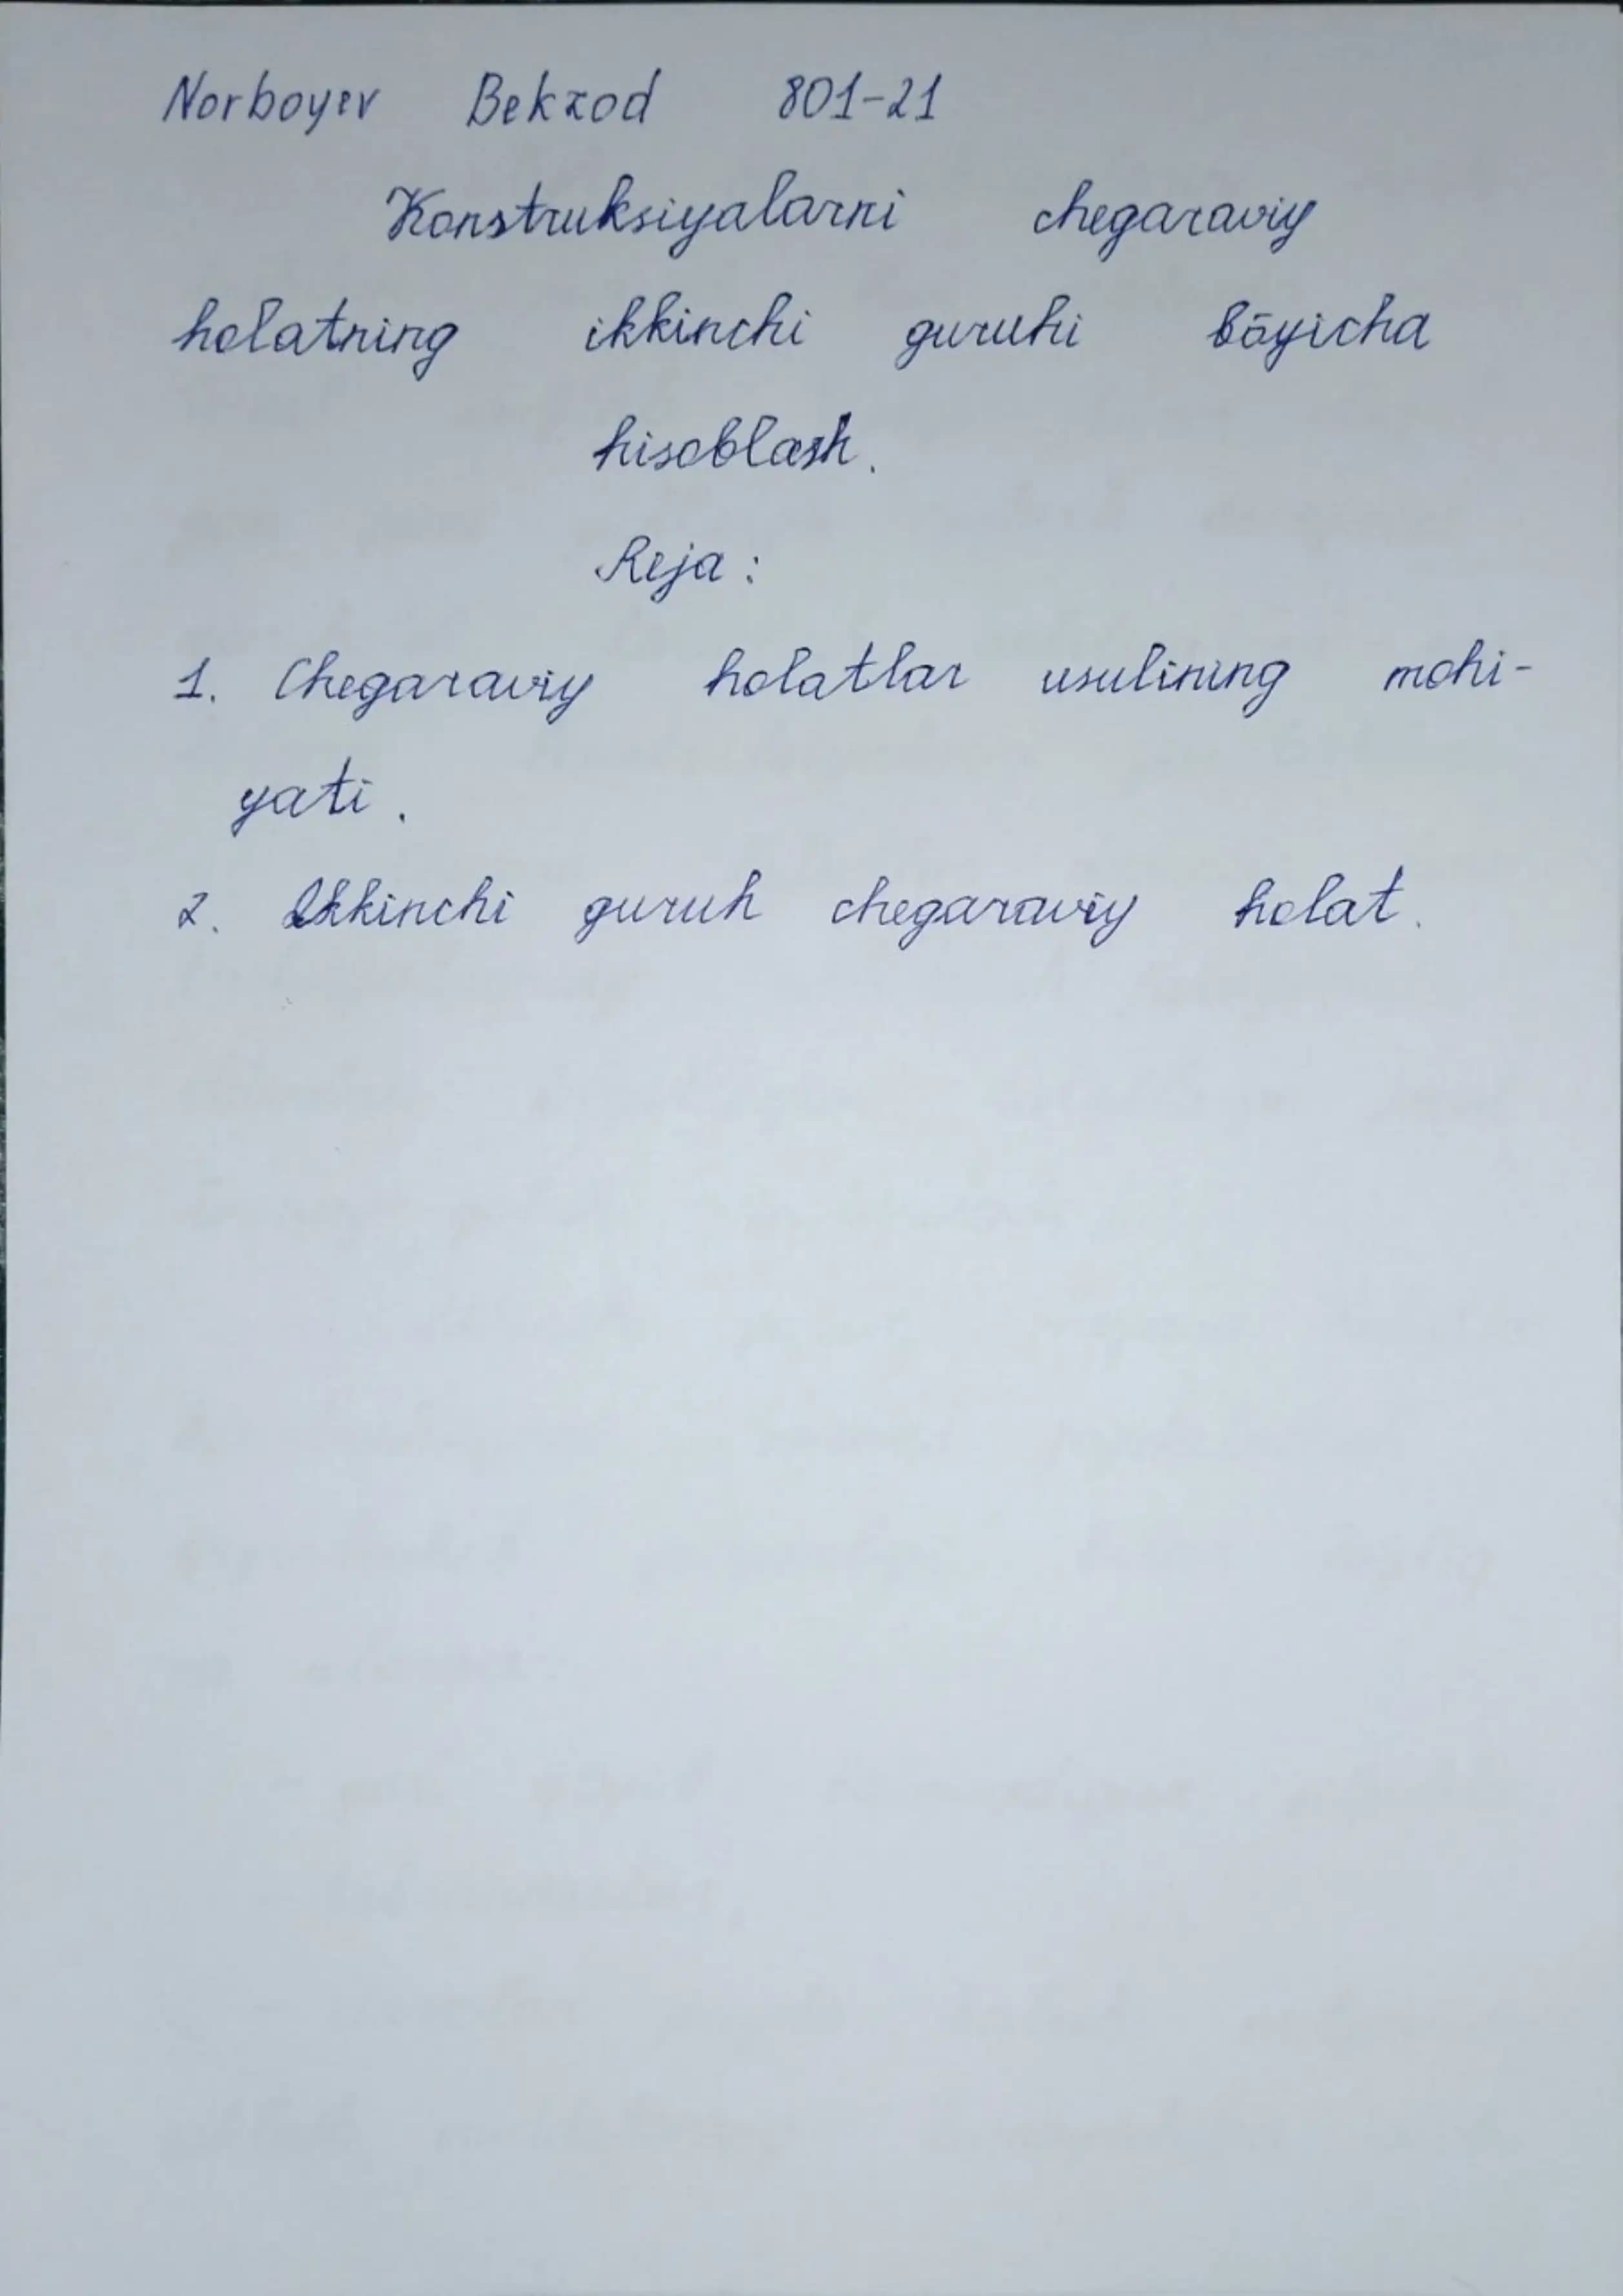 Norboyev Bekzod 801-21
Konstruksiyalarni chegaraviy
holatning ikkinchi guruhi bōyicha
hisoblash.
Reja :
1. Chegaraviy holatlar usulining mohi-
yati.
2. Ikkinchi guruh chegaraviy holat.